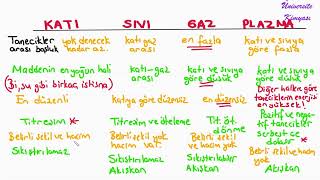 Üniversite
Kimyası
KATI SIVI GAZ PLAZMA
Tanecikler yok denecek katı-gaz en fazla katı ve sıvıya
arası boşluk kadar az. arası göre fazla
Maddenin en yoğun hali katı-gaz katı ve sıvıya katı ve sıvıya
(Bi, su gibi birkaç istisna) arası göre düşük göre düşük
Diğer hallere göre
taneciklerin enerjisi
en yüksek!
En düzenli katıya göre düzensiz en düzensiz
Titreşim Titreşim ve öteleme Tit. öt. Pozitif ve nega-
dönme tif tanecikler
serbest do-
Belirli şekil ve hacim Belirli şekil yok Belirli şekil
var. hacim var. ve hacim yok Belirli şekil ve hacim
yok
Sıkıştırılamaz Sıkıştırılamaz Sıkıştırılabilir
Akışkan Akışkan Akışkan